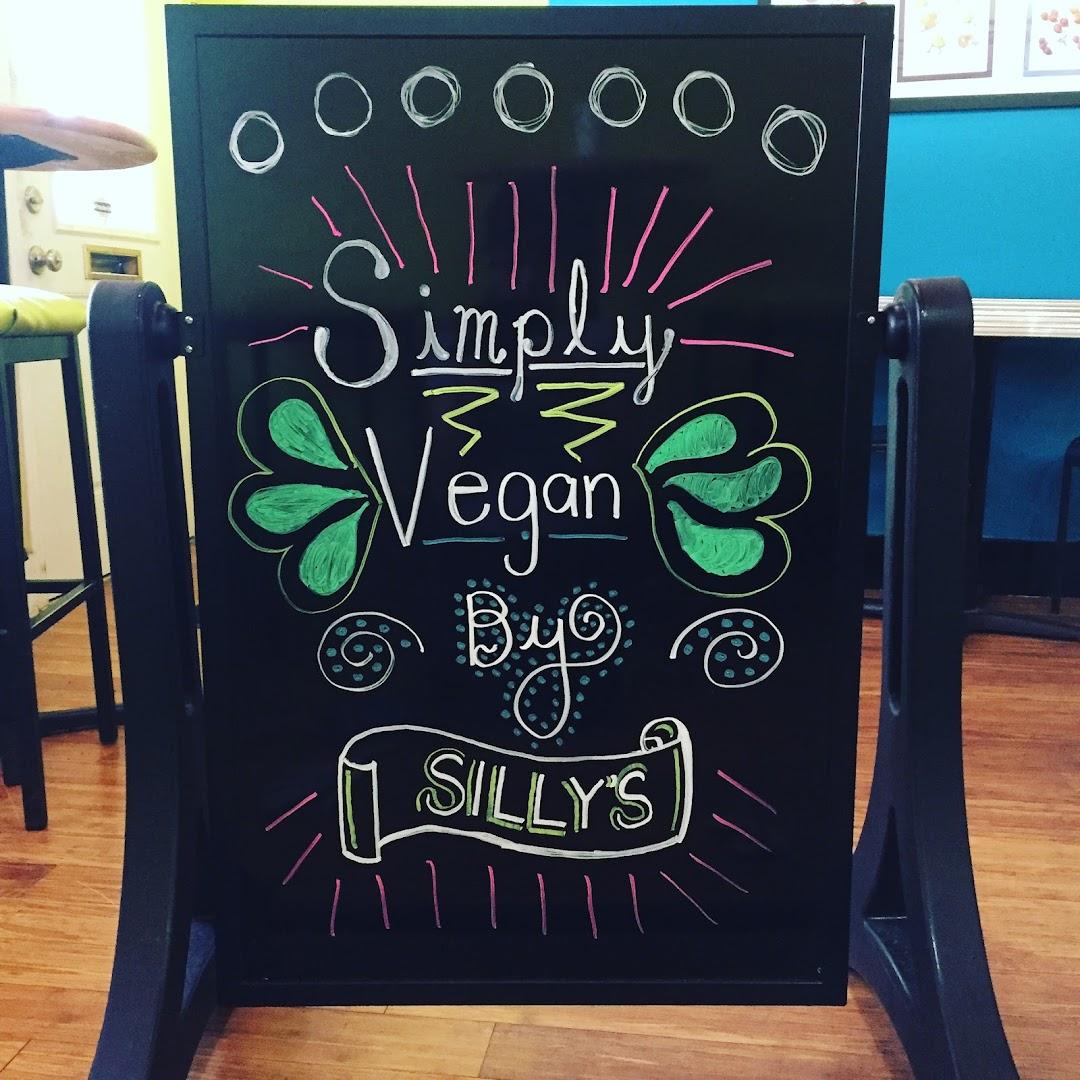 Simply
Vegan
By
SILLY'S